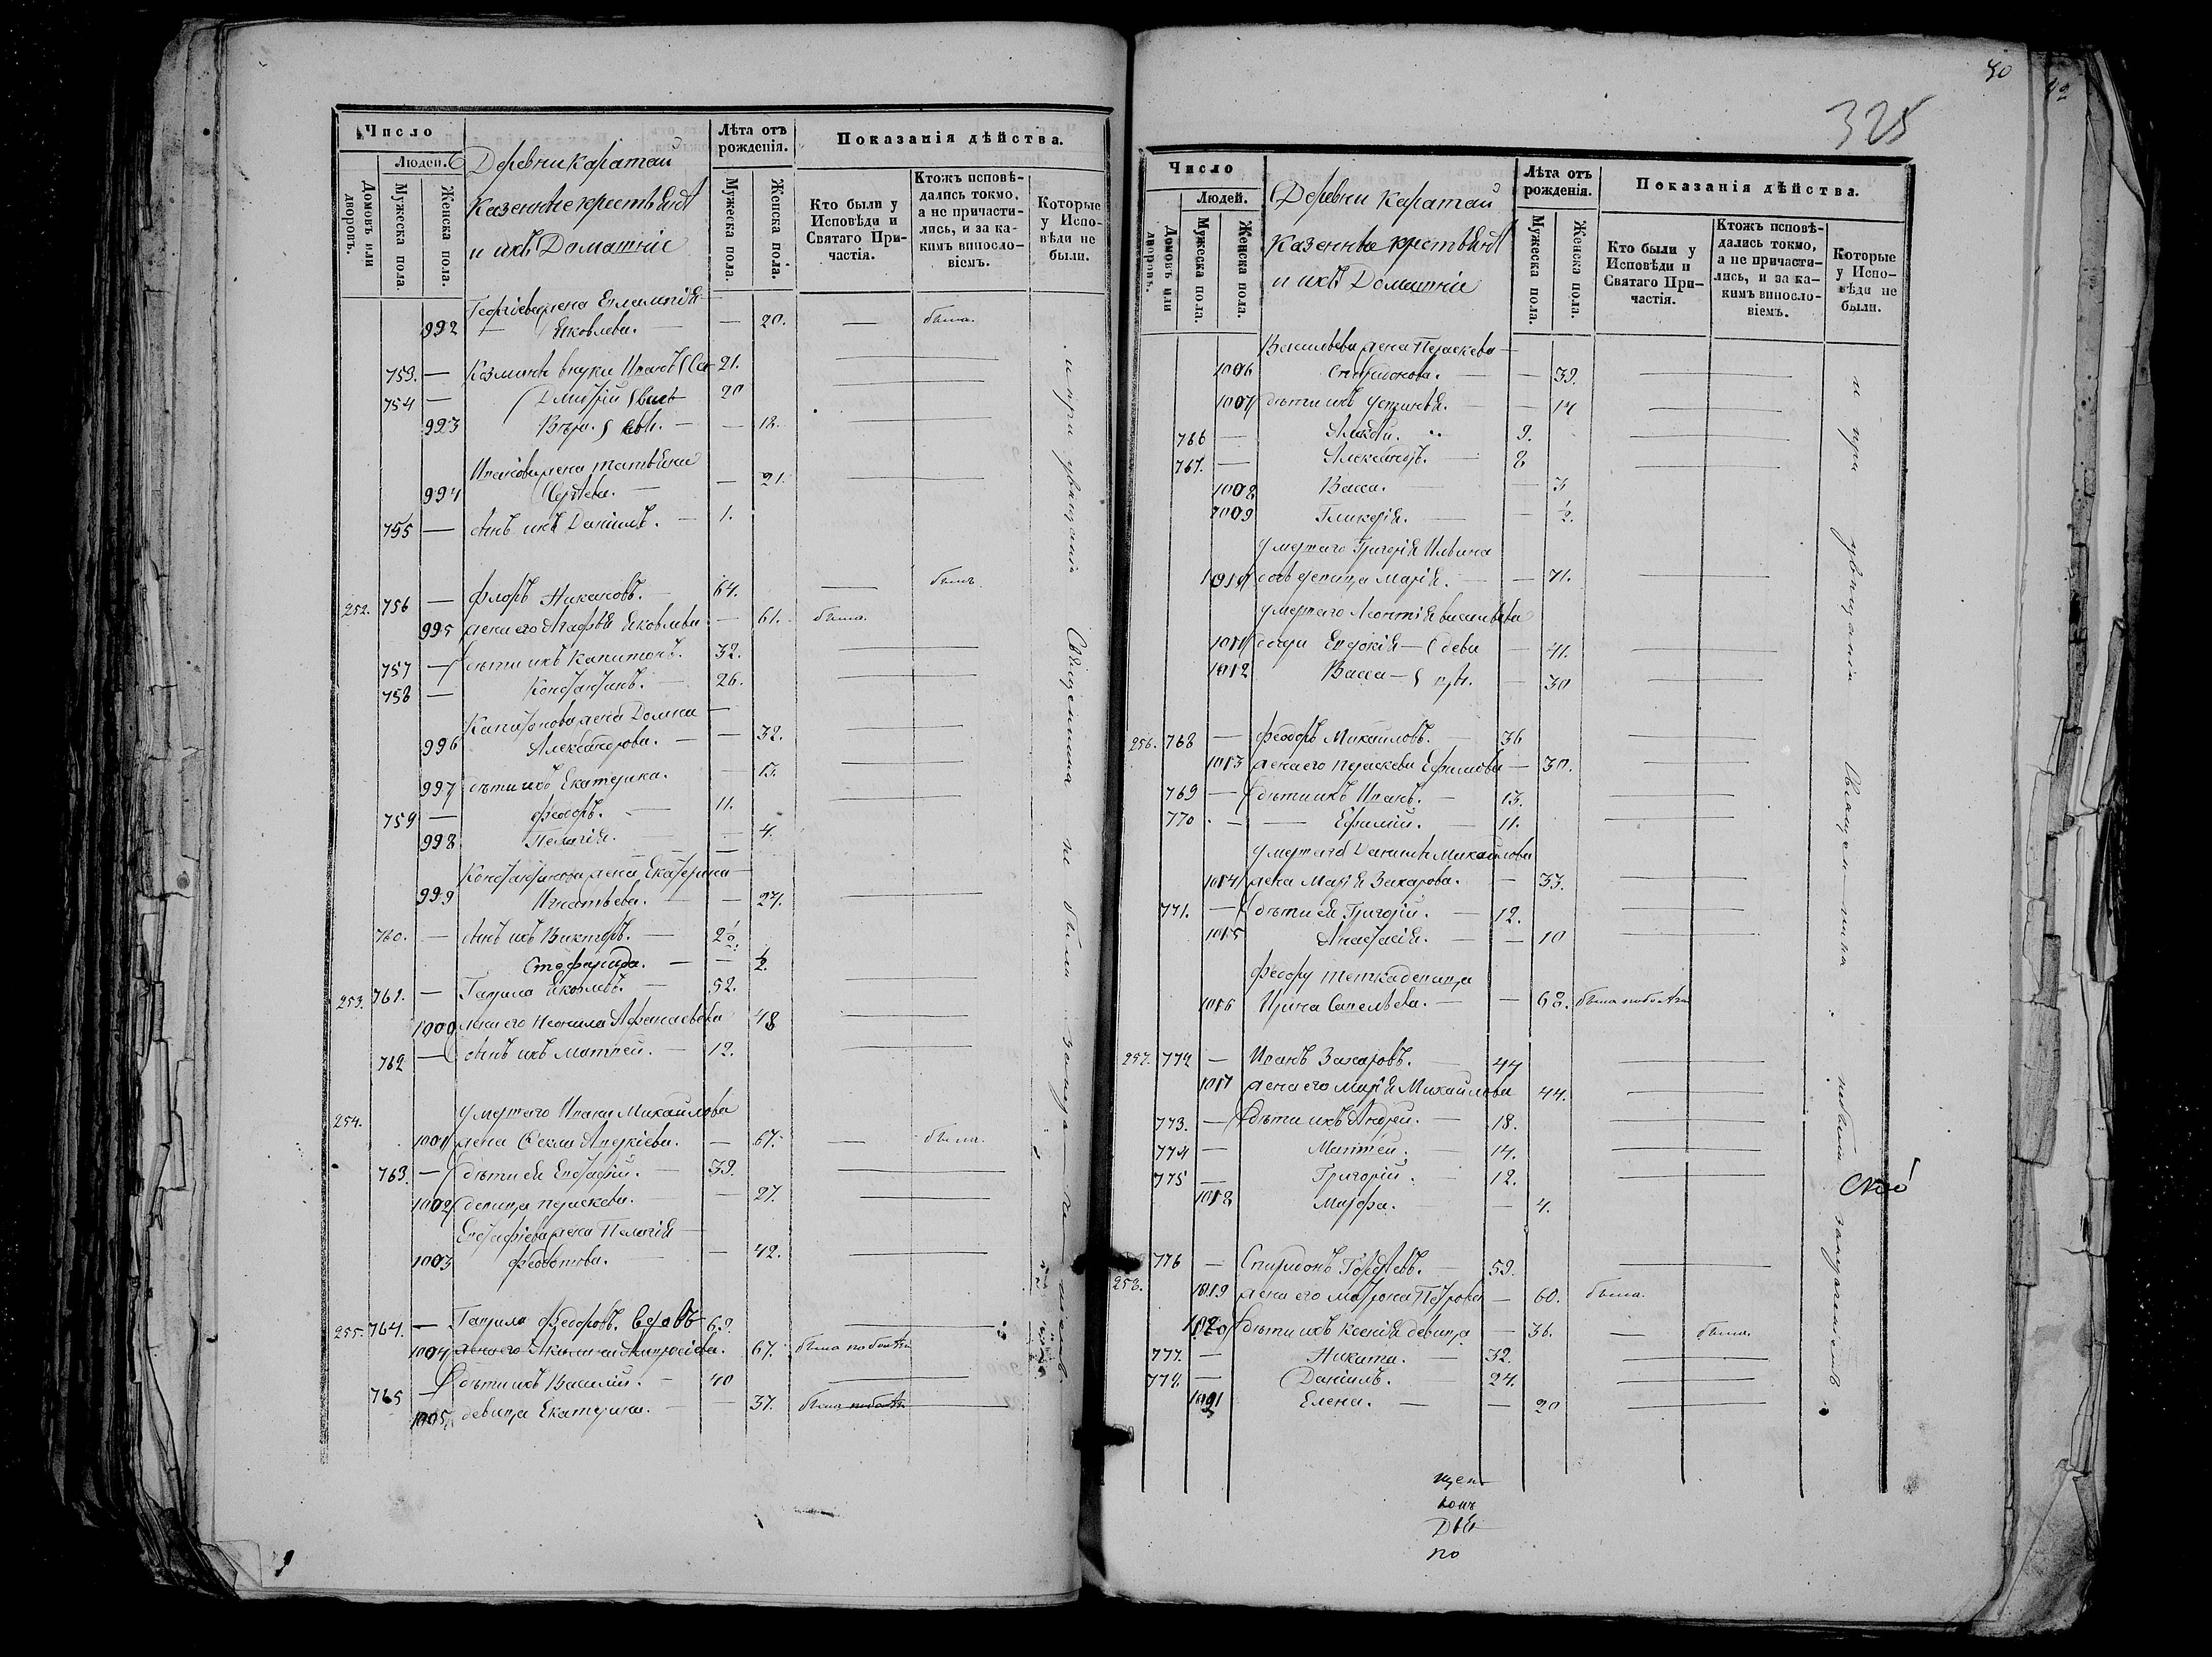 Число
Людей.
Домовъ или дворовъ.
Мужеска пола.
Женска пола.
Деревни Каратай
Казенные крестьяне
и ихъ Домашніе
Лѣта отъ рожденія.
Мужеска пола.
Женска пола.
Показанія дѣйства.
Кто были у Исповѣди и Святаго Причастія.
Ктожъ исповѣдались токмо, а не причастились, и за какимъ винословіемъ.
Которые у Исповѣди не были.
Георгіева жена Евлампія
992 Яковлева. — — 20. — была.
753. — Козмины внуки Иванъ 21.
754 — Дмитрій 20
993 Вѣра. — — 18.
Иванова жена Татьяна
994 Сергѣева. — — 21.
755 — сынъ ихъ Даніилъ. — 1.
252. 756 — Флоръ Никановъ. — 64. — былъ.
995 жена его Агафья Яковлева — 61. была.
757 — дѣти ихъ Капитонъ. 32.
758 — Константинъ. — 26.
Капитонова жена Домна —
996 Александрова. — — 32.
997 дѣти ихъ Екатерина. — 13.
759 — Феодоръ. — 11.
998 Пелагія. — — 4.
Константинова жена Екатерина —
999 Игнатьева. — — 24.
760. — сынъ ихъ Викторъ. — 2
Стефанида. — — 1/2.
253. 761. — Гаврила Яковлевъ. — 52.
1000 жена его Неонила Афанасьева 48
762 — сынъ ихъ Матвей. — 12.
254. Умершаго Ивана Михайлова
1001 жена Фекла Андреева. — 67. — была.
763. — дѣти ея Евстафій. — 39.
1002 девица Параскева. — 27.
Евстафіева жена Пелагія —
1003 Феодотова. — 42.
255. 764. — Гаврила Феодоровъ. 69.
1004 жена его Акилина 67. была
765 — дѣти ихъ Василій. — 40
1005 девица Екатерина. — — 37. была
и при увѣщаніи Священника не были
40
42
325
Число
Людей.
Домовъ или дворовъ.
Мужеска пола.
Женска пола.
Деревни Каратай
Казенные крестьяне
и ихъ Домашніе
Лѣта отъ рожденія.
Мужеска пола.
Женска пола.
Показанія дѣйства.
Кто были у Исповѣди и Святаго Причастія.
Ктожъ исповѣдались токмо, а не причастились, и за какимъ винословіемъ.
Которые у Исповѣди не были.
Васильева жена Параскева —
1006 Спиридонова. — — 39.
1007 дѣти ихъ Устинья. — — 14
766 — Алексѣй. 9.
767. — Александръ. — 8
1008 Васса. — — 3
1009 Гликерія. — — 1/2.
Умершаго Григорія Ильина
1010 девица Марія. — — 71.
Умершаго Леонтія Васильева
1011 дочери Евдокія — девы — 41.
1012 Васса — — 30
256. 768 — Феодоръ Михайловъ. — 36
1013 жена его Параскева Ефимова — 30.
769 — дѣти ихъ Иванъ. — 13.
770 — — Ефимій. — 11.
Умершаго Данилы Михайлова
1014 жена Марія Захарова. — 33.
771. — дѣти ея Григорій. — 12.
1015 Анастасія. — — 10
Феодору тетка девица
1016 Ирина Савельева. — — 68. была
257. 772 — Иванъ Захаровъ. — 44
1017 жена его Марія Михайлова 44.
773. — дѣти ихъ Андрей. — 18.
774 — Матвей. — 14.
775 — Григорій. — 12.
1018 Марфа. — — 4.
258. 776 — Спиридонъ Гордѣевъ. — 59.
1019 жена его Матрона Петрова — 60. была.
1020 дѣти ихъ Ксенія девица — 36. — была.
777. — Никита. — 32.
778. — Даніилъ. — 24.
1021 Елена. — — 20
и при увѣщаніи